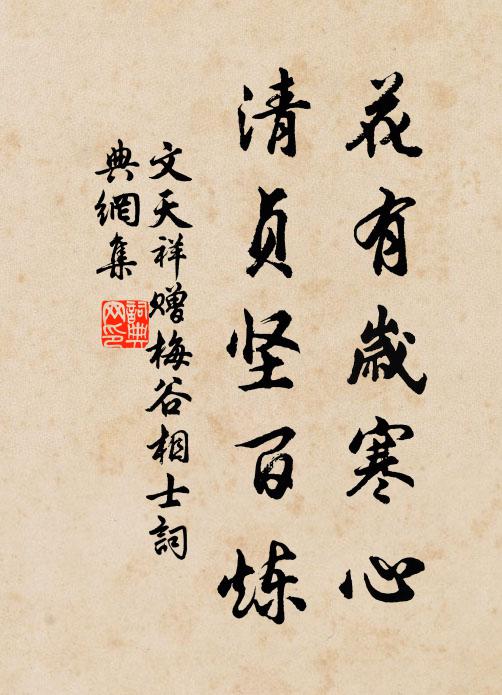 花有歲寒心
清贞坚百炼
文天祥赠梅谷相士詞
典網集
詞典网印